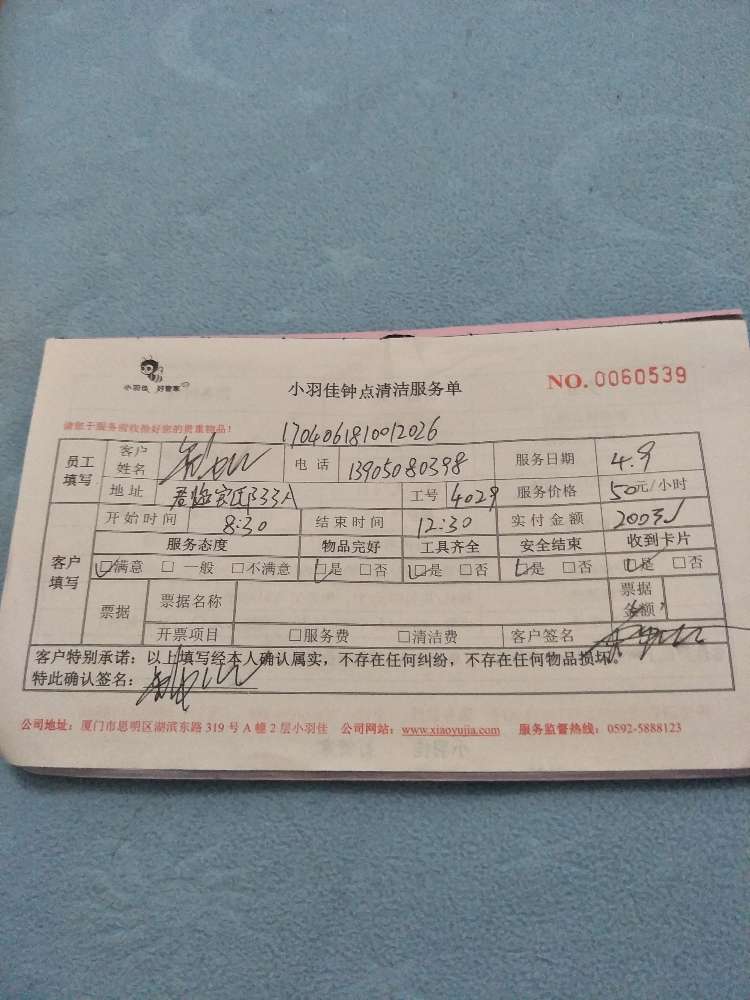 小羽佳 好管家
小羽佳钟点清洁服务单
NO. 0060539
请您于服务前收捡好您的贵重物品！
1704061810012026
员工填写
客户姓名
电话 13905080398
服务日期 4.9
地址 333A
工号 4029
服务价格 50元/小时
客户填写
开始时间 8:30
结束时间 12:30
实付金额 200
服务态度 物品完好 工具齐全 安全结束 收到卡片
☑满意 □一般 □不满意 ☑是 □否 ☑是 □否 ☑是 □否 ☑是 □否
票据 票据名称 票据金额
开票项目 □服务费 □清洁费 客户签名
客户特别承诺：以上填写经本人确认属实，不存在任何纠纷，不存在任何物品损坏。
特此确认签名：
公司地址：厦门市思明区湖滨东路 319 号 A 幢 2 层小羽佳 公司网站：www.xiaoyujia.com 服务监督热线：0592-5888123